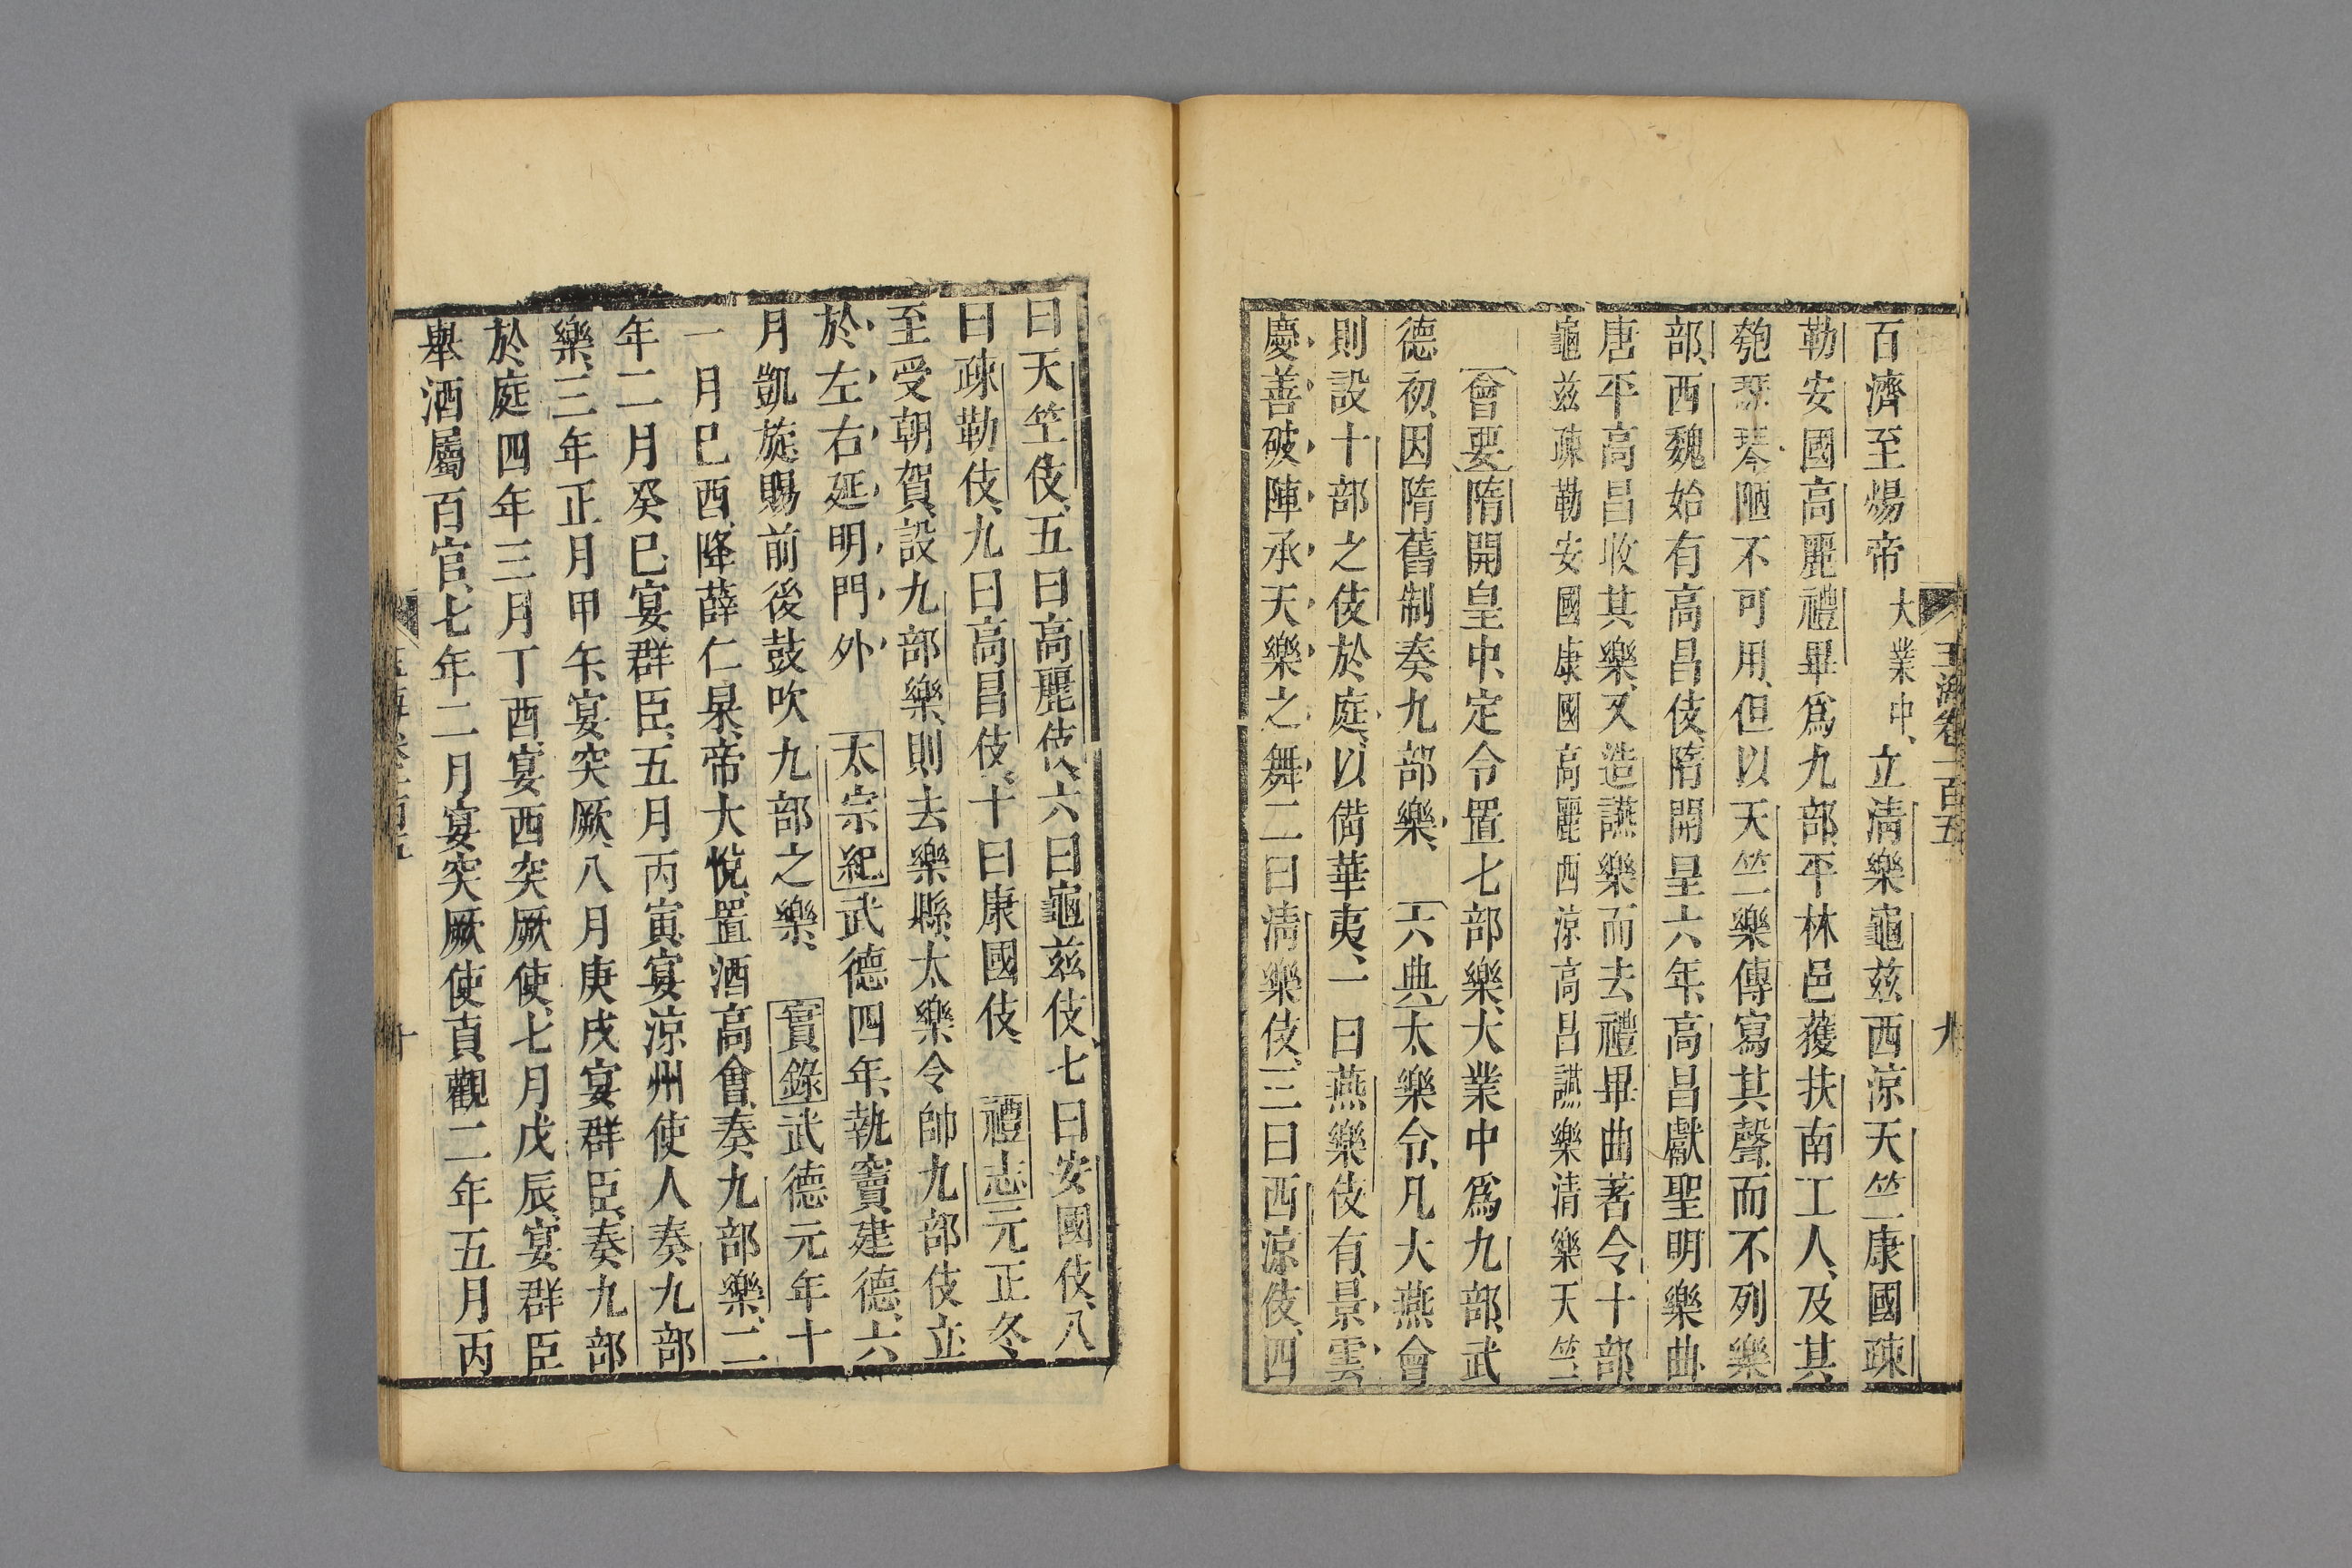 玉海卷一百五 九
百濟至煬帝大業中、立清樂龜兹西涼天竺康國疎
勒安國高麗禮畢爲九部、平林邑獲扶南工人、及其
匏琴陋不可用、但以天竺樂傳寫其聲、而不列樂
部、西魏始有高昌伎、隋開皇六年、高昌獻聖明樂曲
唐平高昌收其樂、又造讌樂而去禮畢曲著令、十部
龜兹疎勒安國康國高麗西涼高昌讌樂清樂天竺
會要隋開皇中、定令置七部樂、大業中爲九部、武
德初、因隋舊制奏九部樂、 六典太樂令、凡大燕會
則設十部之伎於庭、以備華夷、一曰燕樂伎有景雲
慶善破陣承天樂之舞二曰淸樂伎、三曰西涼伎、四
曰天竺伎、五曰高麗伎、六曰龜兹伎、七曰安國伎、八
曰疎勒伎、九曰高昌伎、十曰康國伎、 禮志元正冬
至受朝賀、設九部樂、則去樂縣、太樂令帥九部伎立
於左右延明門外 太宗紀武德四年、執竇建德、六
月凱旋賜前後鼓吹九部之樂、 實錄武德元年十
一月巳酉、降薛仁杲、帝大悅、置酒高會、奏九部樂、二
年二月癸巳宴群臣、五月丙寅、宴涼州使人奏九部
樂、三年正月甲午、宴突厥、八月庚戌宴群臣、奏九部
於庭四年三月丁酉、宴西突厥使、七月戊辰、宴群臣
舉酒屬百官、七年二月宴突厥使貞觀二年五月丙
十